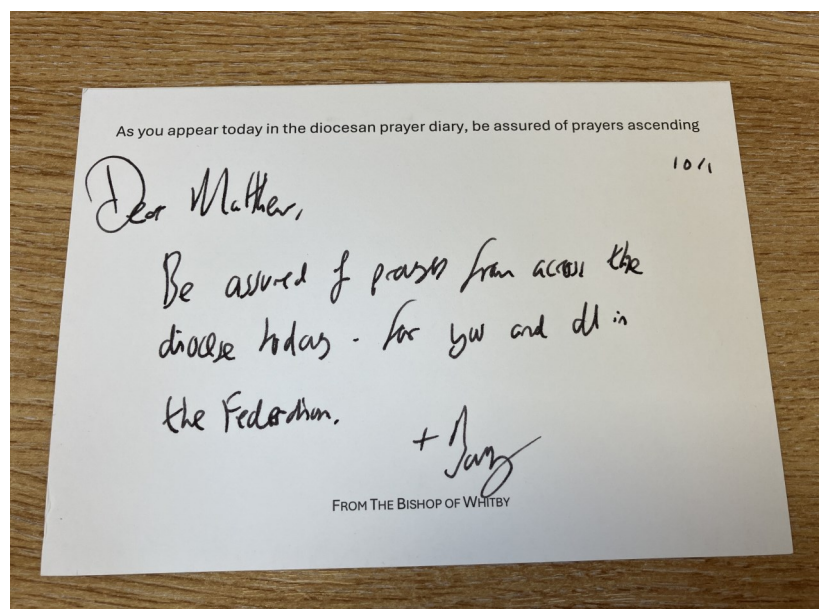 As you appear today in the diocesan prayer diary, be assured of prayers ascending
10/1
Dear Matthew,
Be assured of prayers from across the
diocese today - for you and all in
the Federation.
+ Barry
FROM THE BISHOP OF WHITBY